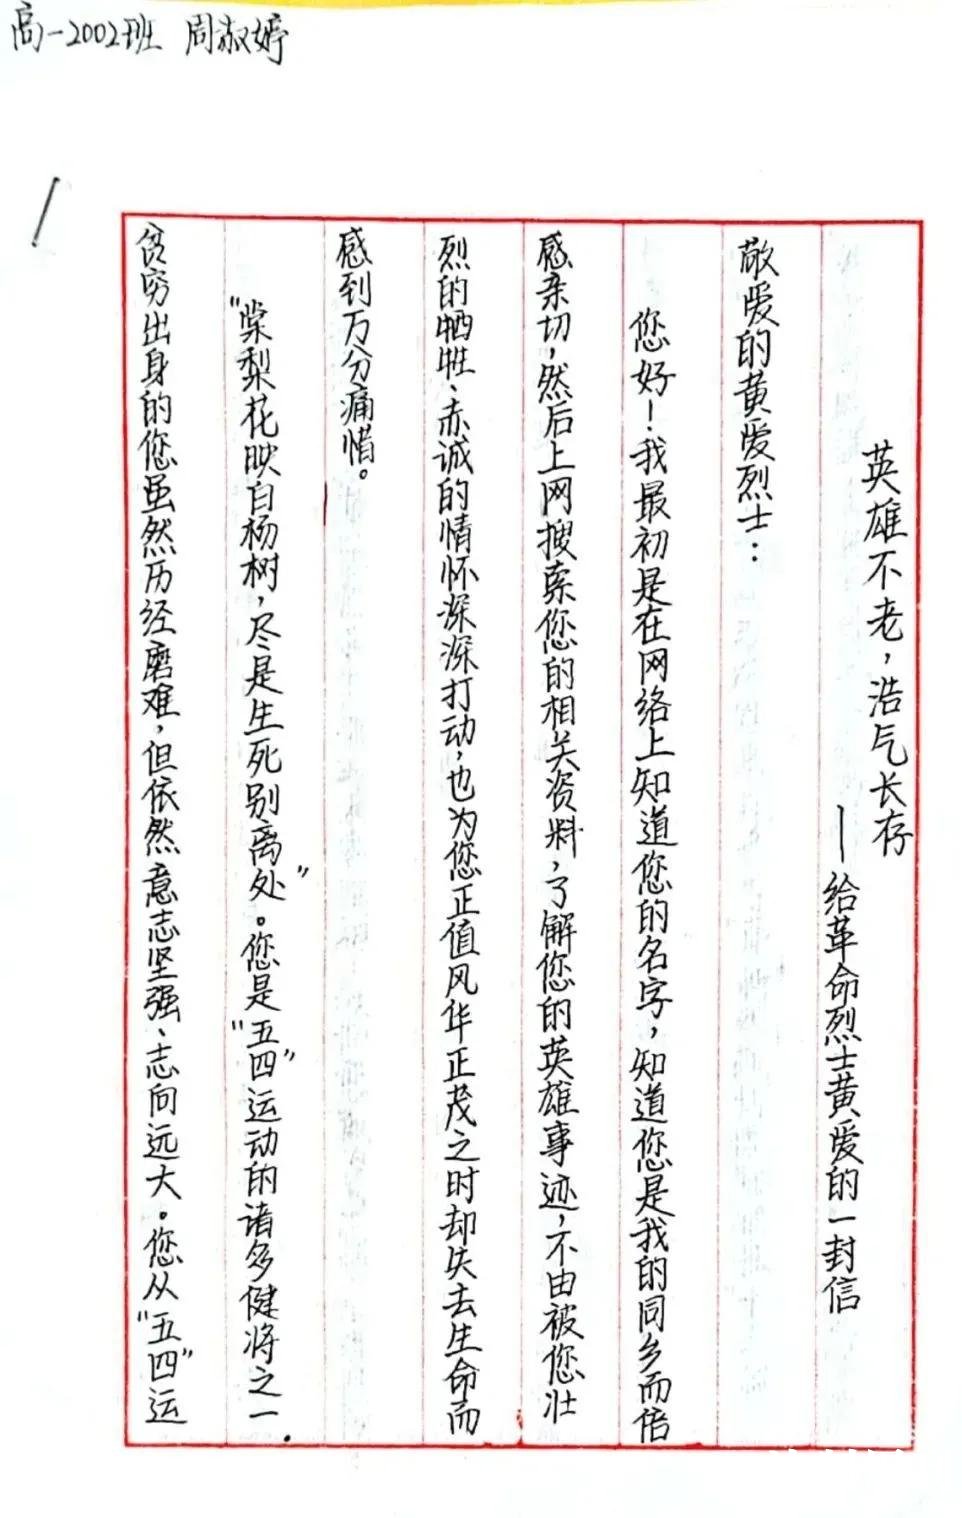 高一2002班 周淑婷
英雄不老，浩气长存
——给革命烈士黄爱的一封信
敬爱的黄爱烈士：
您好！我最初是在网络上知道您的名字，知道您是我的同乡而倍
感亲切，然后上网搜索您的相关资料，了解您的英雄事迹，不由被您壮
烈的牺牲、赤诚的情怀深深打动，也为您正值风华正茂之时却失去生命而
感到万分痛惜。
“棠梨花映白杨树，尽是生死别离处”。您是“五四”运动的诸多健将之一，
贫穷出身的您虽然历经磨难，但依然意志坚强、志向远大。您从“五四”运